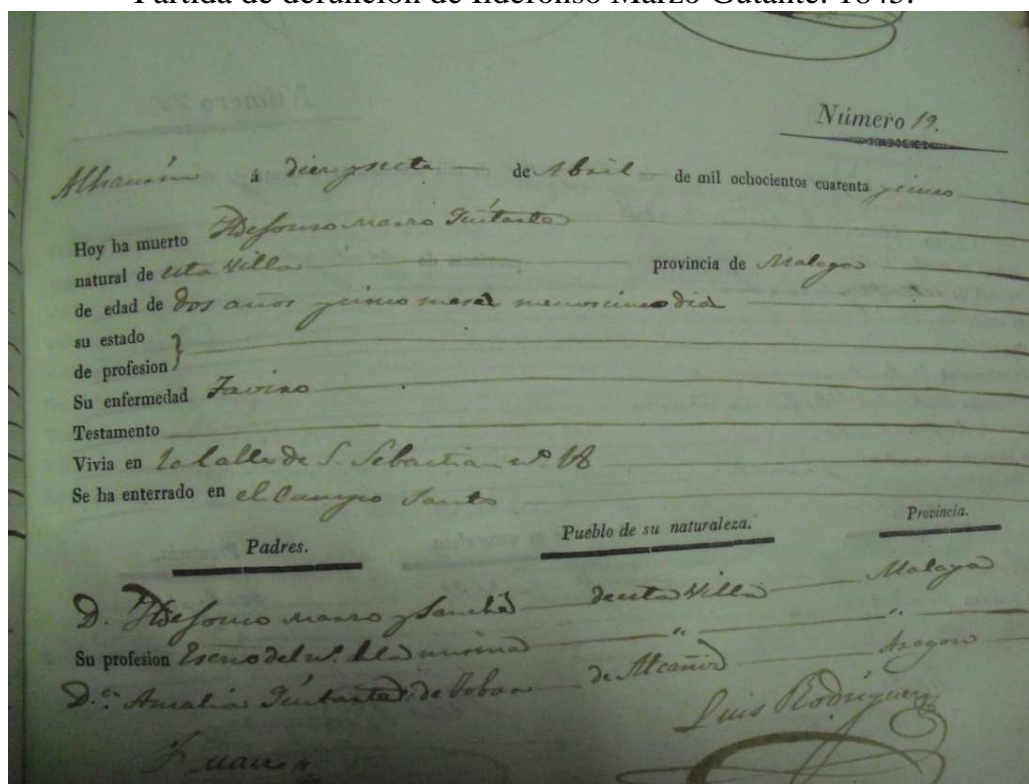 Partida de defunción de Ildefonso Marzo Gutante. 1845.
Número 19.
Alhaurín á diez y siete de Abril de mil ochocientos cuarenta y cinco
Hoy ha muerto Ildefonso Marzo
natural de esta Villa provincia de Malaga
de edad de dos años y cinco meses menos cinco dias
su estado
de profesion
Su enfermedad
Testamento
Vivia en la Calle de S. Sebastian nº 18
Se ha enterrado en el Campo Santo
Padres. Pueblo de su naturaleza. Provincia.
D. Ildefonso Marzo y Sanchez de esta Villa Malaga
Su profesion Escno del nº de la misma " "
D.ª Amalia de de Alcañiz Aragon
Luis Rodriguez